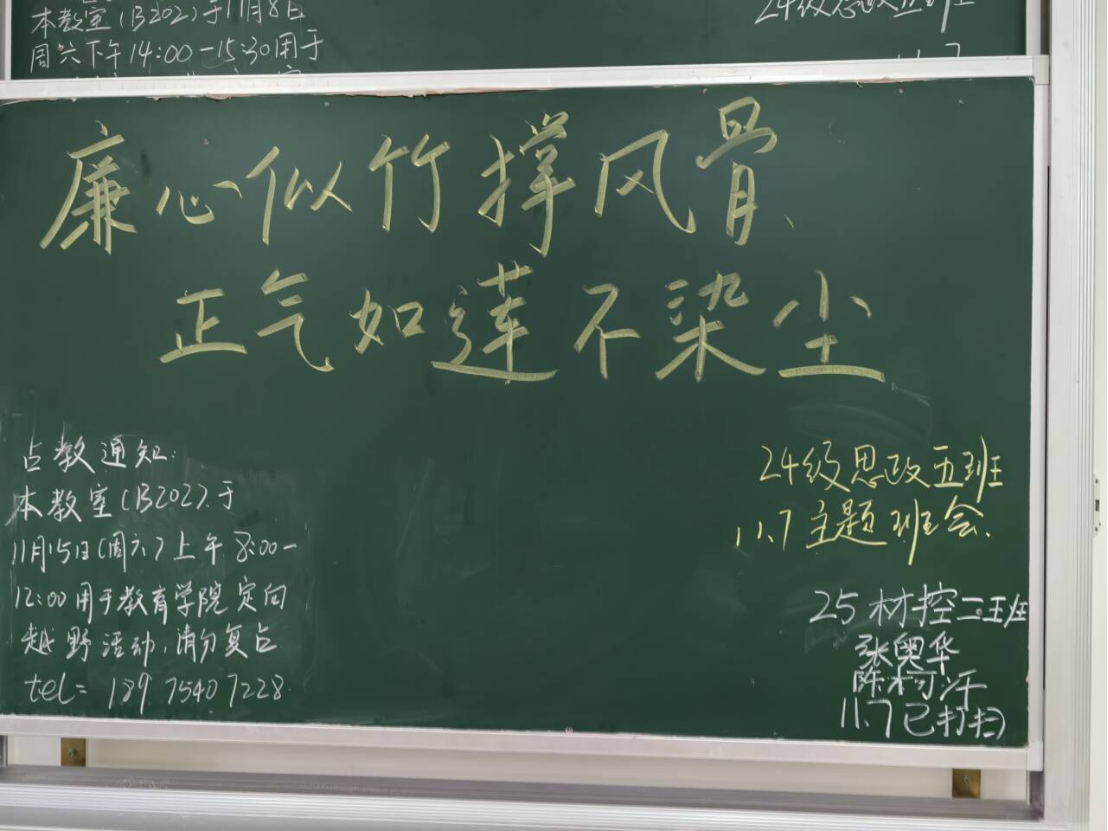 本教室(B202)于11月8日
周六下午14:00-15:30用于
24级思政五班
11.7
廉心似竹撑风骨
正气如莲不染尘
占教通知:
本教室(B202)于
11月15日(周六)上午8:00-
12:00用于教育学院定向
越野活动,请勿复占
tel= 189 7540 7228
24级思政五班
11.7主题班会.
25材控二班
张奥华
陈柯汗
11.7已打扫